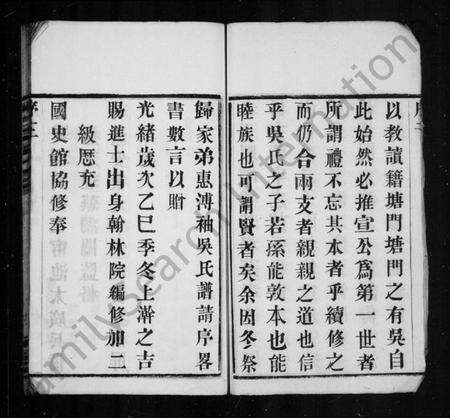 以教讀籍塘門塘門之有吳自
此始然必推宣公爲第一世者
所謂禮不忘其本者乎續修之
而仍合兩支者親親之道也信
乎吳氏之子若孫能敦本也能
睦族也可謂賢者矣余因冬祭
歸家弟惠溥袖吳氏譜請序畧
書數言以贈
光緒歲次乙巳季冬上澣之吉
賜進士出身翰林院編修加二
級歷充
國史館協修奉
序三
FamilySearch International